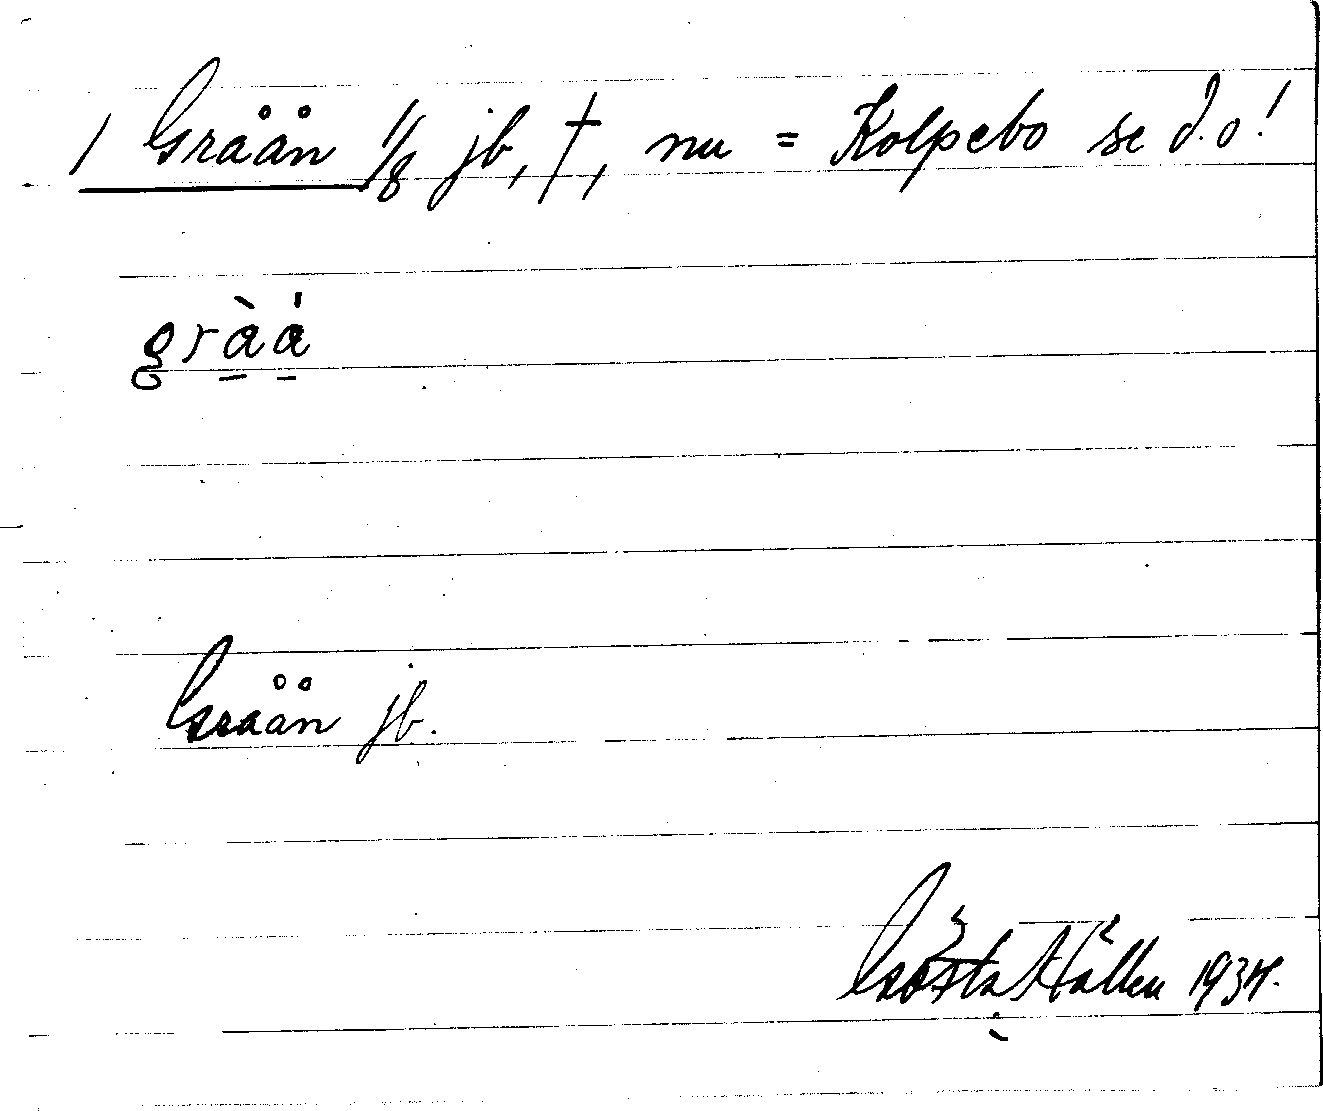 1 Gråån 1/8 jb, †, nu = Kolpebo se d.o!
gràá
Gråån jb.
Gösta Hållen 1934.